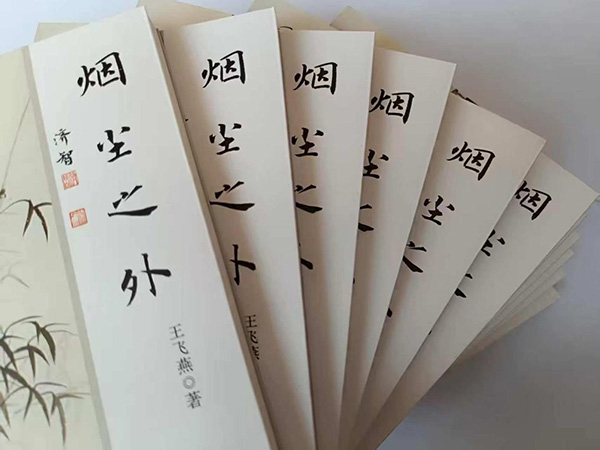 烟尘之外
济智
王飞燕◎著
烟尘之外
王飞燕
烟尘之
烟尘之
烟尘之
烟尘之